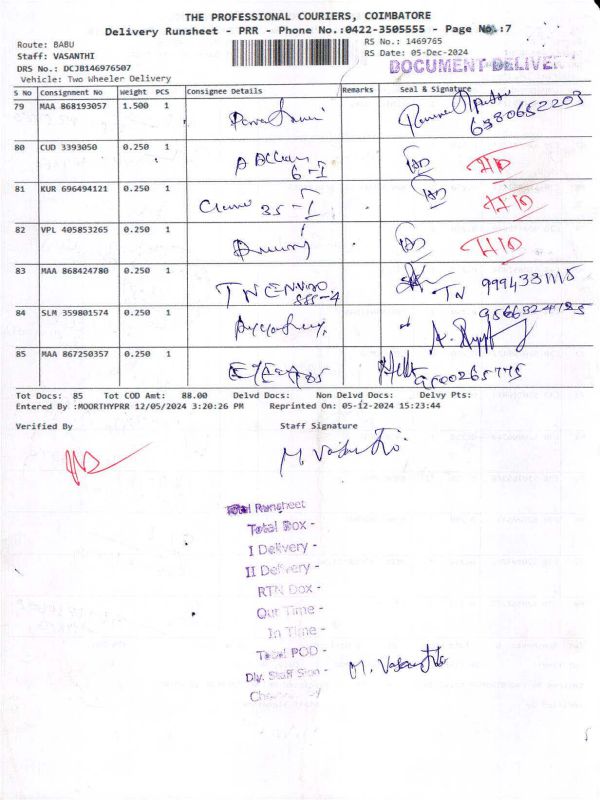 THE PROFESSIONAL COURIERS, COIMBATORE
Delivery Runsheet - PRR - Phone No.:0422-3505555 - Page No.:7
Route: BABU RS No.: 1469765
Staff: VASANTHI RS Date: 05-Dec-2024
DRS No.: DCJB146976507 DOCUMENT DELIVER
Vehicle: Two Wheeler Delivery
S No Consignment No Weight PCS Consignee Details Remarks Seal & Signature
79 MAA 868193057 1.500 1 6380652203
80 CUD 3393050 0.250 1 6-I HD
81 KUR 696494121 0.250 1 35-I HD
82 VPL 405853265 0.250 1 HD
83 MAA 868424780 0.250 1 TN ENVIRO TN 9994331115
84 SLM 359801574 0.250 1
85 MAA 867250357 0.250 1 9500265775
Tot Docs: 85 Tot COD Amt: 88.00 Delvd Docs: Non Delvd Docs: Delvy Pts:
Entered By :MOORTHYPRR 12/05/2024 3:20:26 PM Reprinted On: 05-12-2024 15:23:44
Verified By Staff Signature
M. Vasanthi
Total Runsheet
Total Box -
I Delivery -
II Delivery -
RTN Dox -
Out Time -
In Time -
Total POD -
Dly. Staff Sign - M. Vasanthi